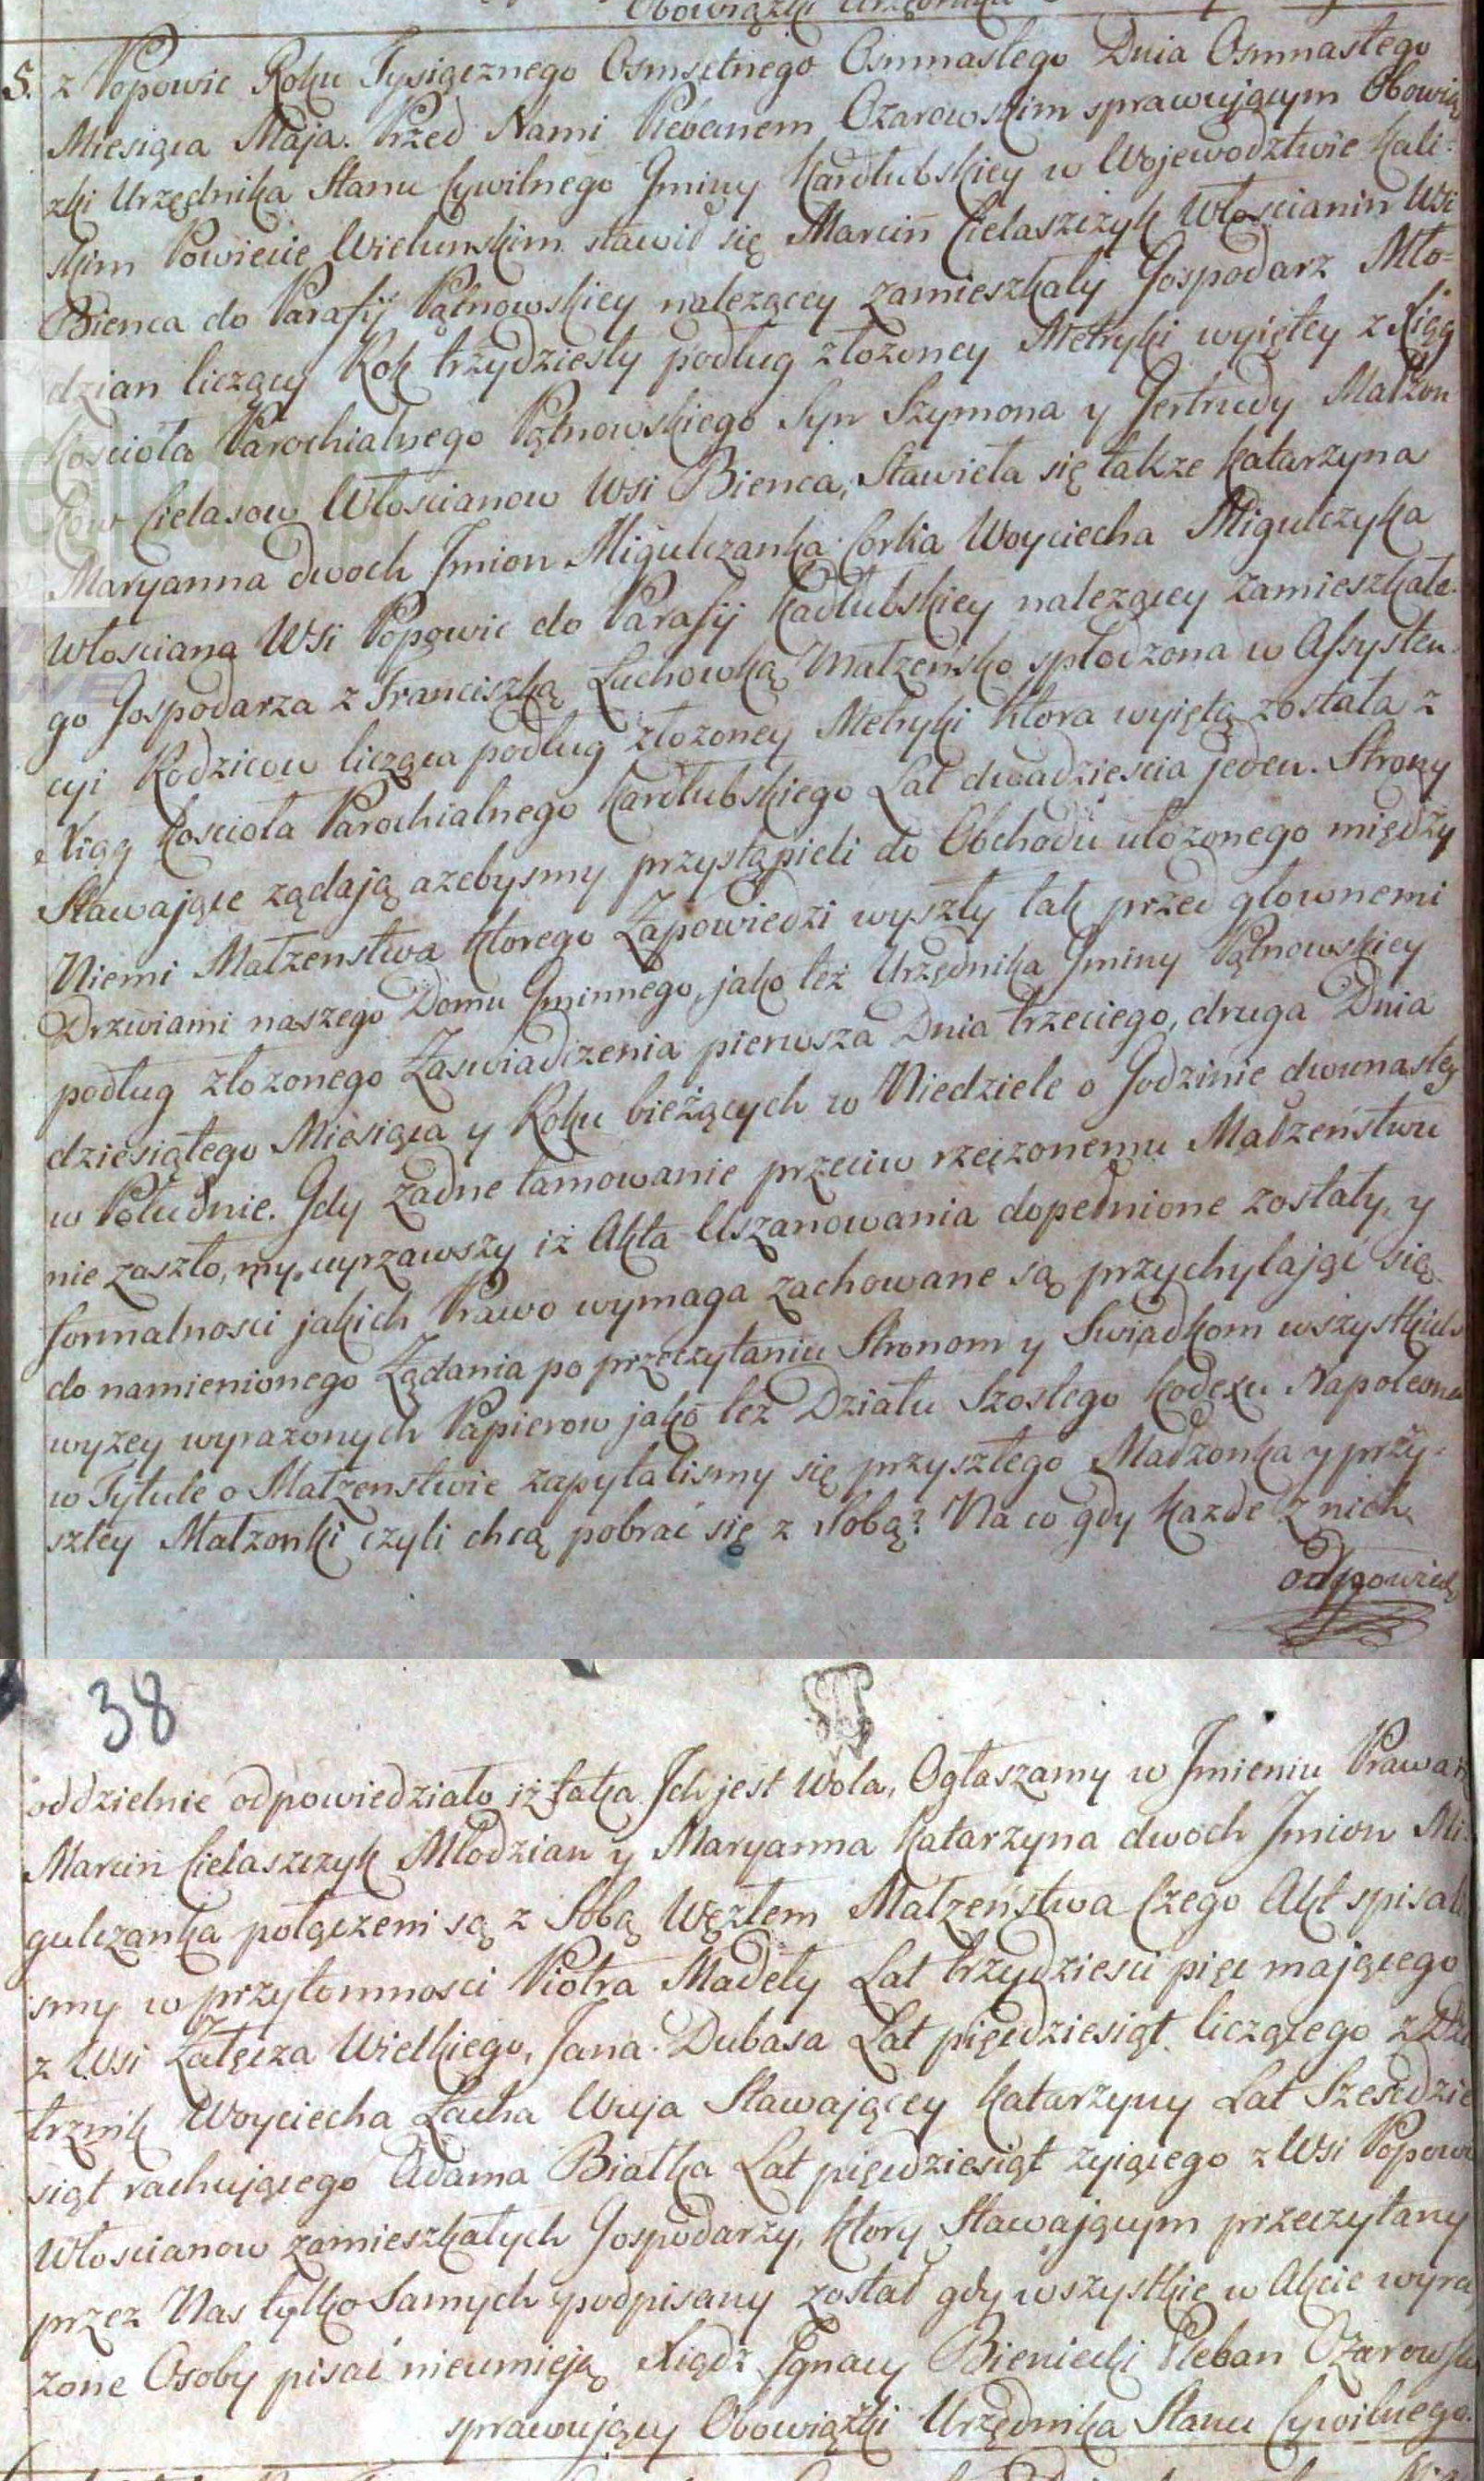 Obowiązki Urzędnika
5. z Popowic Roku Tysiącznego Osmsetnego Osmnastego Dnia Osmnastego
Miesiąca Maja. Przed Nami Plebanem Ozarowskim sprawującym Obowią
zki Urzędnika Stanu Cywilnego Gminy Kadłubskiey w Wojewodztwie Kali-
skim Powiecie Wielunskim stawił się Marcin Cielaszczyk Włoscianin Wsi
Bienca do Parafij Pątnowskiey nalezącey zamieszkały Gospodarz Mło-
dzian liczący Rok trzydziesty podług złozoney Metryki wyiętey z Xiąg
Koscioła Parochialnego Pątnowskiego Syn Szymona y Gertrudy Małzon
kow Cielasow Włoscianow Wsi Bienca, Stawieła się także Katarzyna
Maryanna dwoch Jmion Migulczanka Corka Woyciecha Migulczyka
Włosciana Wsi Popowic do Parafij Kadłubskiey nalezącey zamieszkałe-
go Gospodarza z Franciszką Luchowką Małzeńsko spłodzona w Assysten-
cyi Rodzicow licząca podług złozoney Metryki ktora wyiętą została z
Xiąg Koscioła Parochialnego Kadłubskiego Lat dwadziescia jeden. Strony
Stawające ządają azebysmy przystąpieli do Obchodu ułozonego między
Niemi Małzenstwa ktorego Zapowiedzi wyszły tak przed głownemi
Drzwiami naszego Domu Gminnego, jako też Urzędnika Gminy Pątnowskiey
podług złozonego Zaswiadczenia pierwsza Dnia trzeciego, druga Dnia
dziesiątego Miesiąca y Roku bieżących w Niedziele o Godzinie dwunastey
w Południe. Gdy żadne tamowanie przeciw rzeczonemu Małzeństwu
nie zaszło, my wyrzawszy iż Akta Uszanowania dopełnione zostały, y
formalnosci jakich Prawo wymaga zachowane są przychylając się
do namienionego Ządania po przeczytaniu Stronom y Swiadkom wszystkich
wyzey wyrazonych Papierow jako też Działu Szostego Kodexu Napoleona
w Tytule o Małzenstwie zapytalismy się przyszłego Małzonka y przy-
szłey Małzonki czyli chcą pobrać się z sobą? Na co gdy kazde z nich
odpowied
38
oddzielnie odpowiedziało iż taka Jch jest Wola, Ogłaszamy w Jmieniu Prawa iż
Marcin Cielaszczyk Młodzian y Maryanna Katarzyna dwoch Jmion Mi
gulczanka połączeni są z Sobą Węzłem Małzeństwa Czego Akt spisali
smy w przytomnosci Piotra Madeły Lat trzydziesci pięć mającego
z Wsi Załęcza Wielkiego, Jana Dubasa Lat pięcdziesiąt liczącego z Dzie
trznik Woyciecha Lacha Wuja Stawającey Katarzyny Lat Szescdzie
siąt rachującego Adama Białka Lat pięcdziesiąt zyiącego z Wsi Popowic
Włoscianow zamieszkałych Gospodarzy, ktory Stawającym przeczytany
przez Nas tylko Samych podpisany został gdy wszystkie w Akcie wyra
zone Osoby pisać nieumieją Xiądz Jgnacy Bieniecki Pleban Ozarowski
sprawujący Obowiązki Urzędnika Stanu Cywilnego.